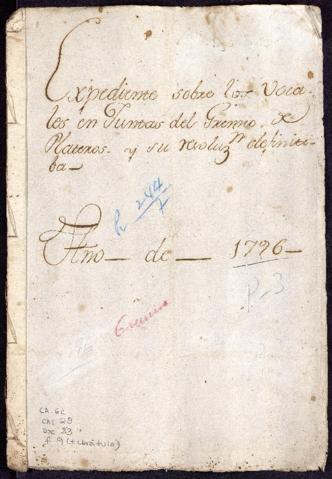 Expediente sobre los Voca-
les en Juntas del Gremio de
Plateros y su resoluzn definiti-
ba
h 244/7
Año de 1796
P-3
Gremios
96
CA-GC
CAJ 25
DOC 33
f 9 (+ carátula)